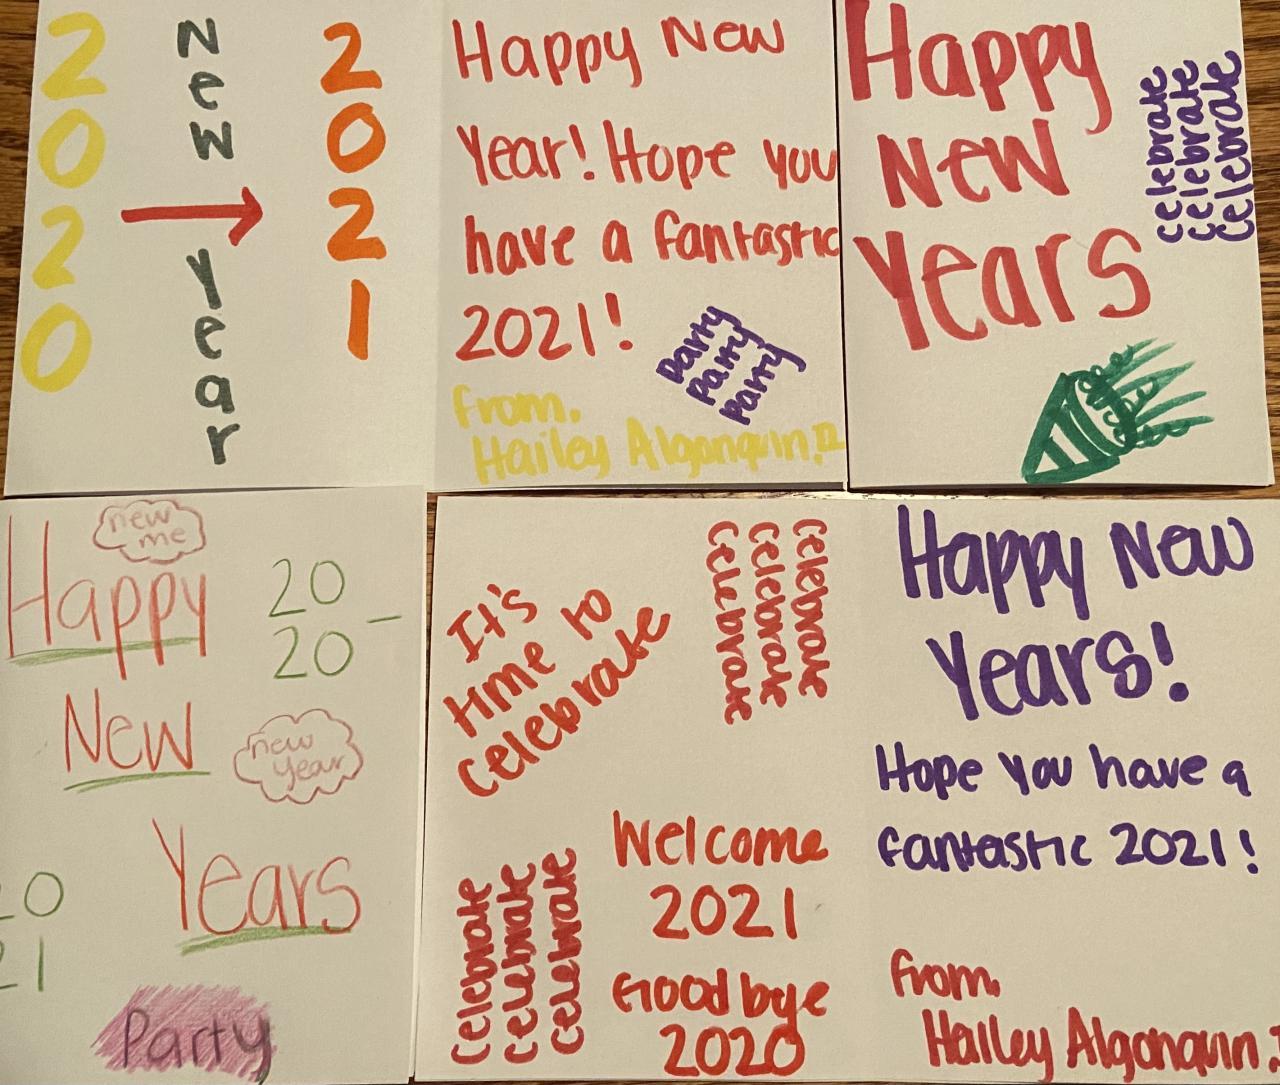 2
0
2
0
N
e
w
y
e
a
r
2
0
2
1
Happy New
Year! Hope you
have a fantastic
2021!
Party
Party
Party
from,
Hailey Algonquin, IL
Happy
New
Years
celebrate
celebrate
celebrate
new
me
Happy
20
20
New
new
year
Years
20
21
Party
It's
time to
celebrate
celebrate
celebrate
celebrate
celebrate
celebrate
celebrate
Welcome
2021
Goodbye
2020
Happy New
Years!
Hope you have a
fantastic 2021!
from,
Hailey Algonquin,